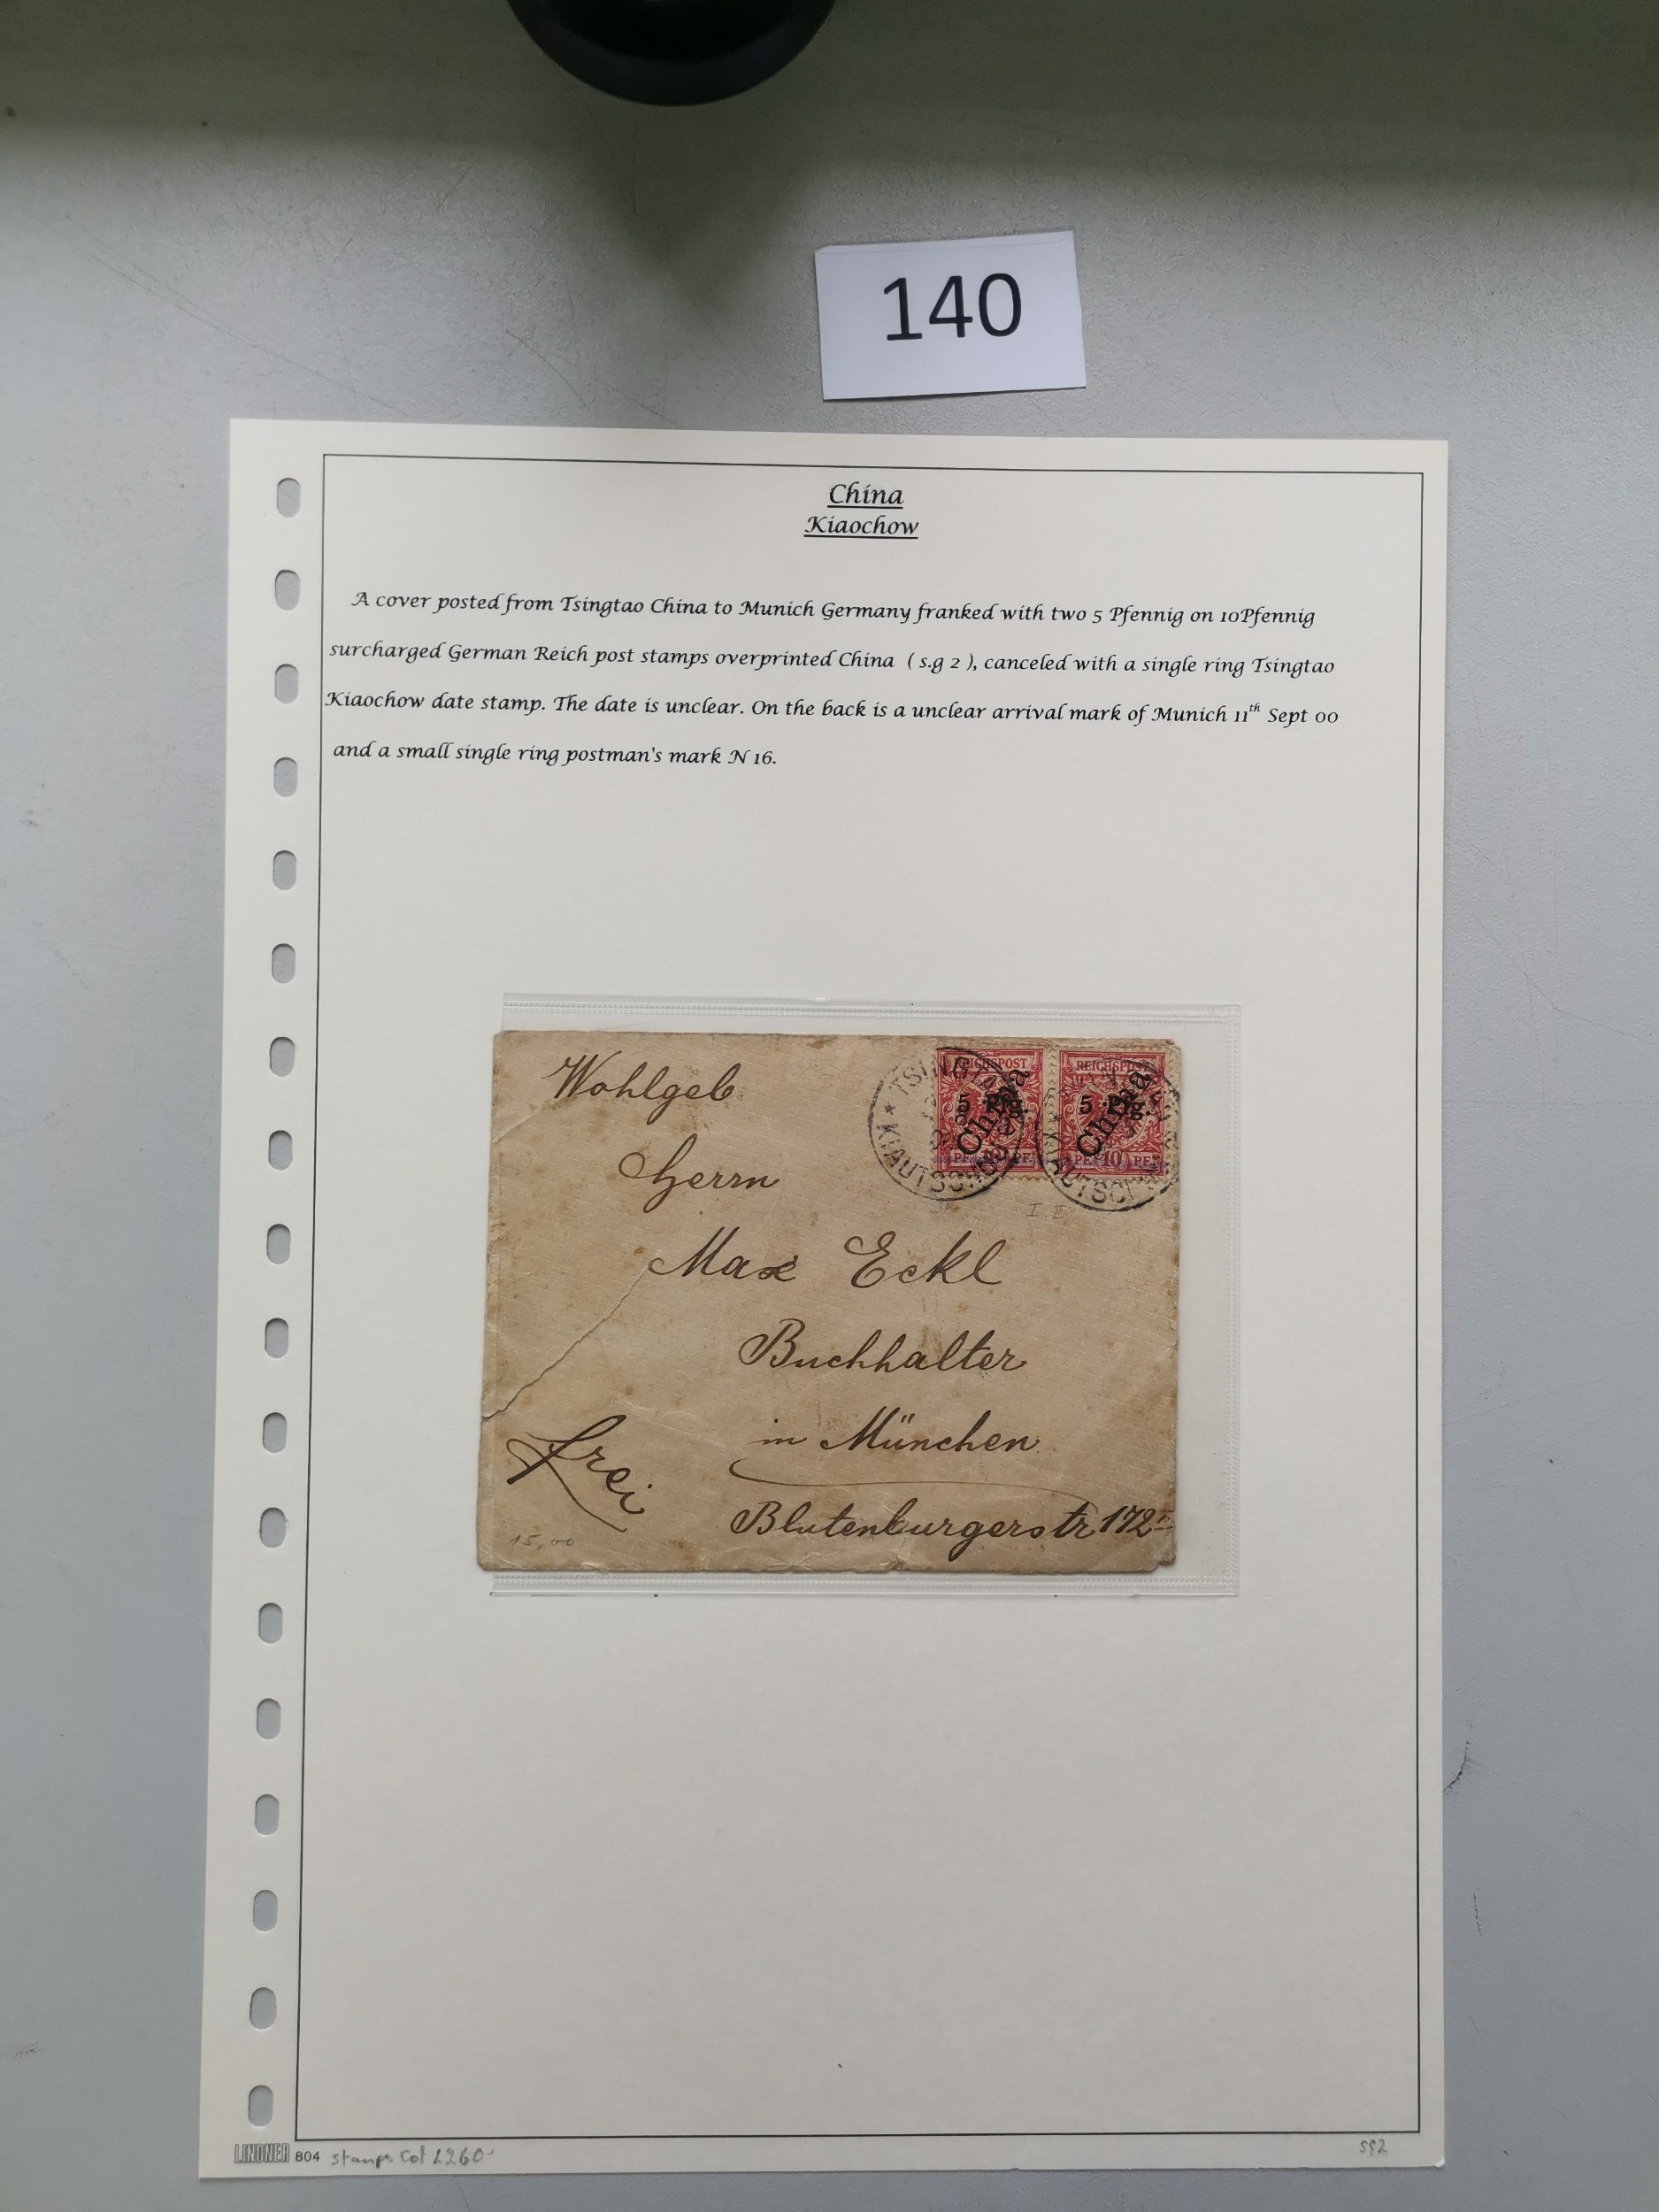 140
China
Kiaochow
A cover posted from Tsingtao China to Munich Germany franked with two 5 Pfennig on 10Pfennig
surcharged German Reich post stamps overprinted China ( s.g 2 ), canceled with a single ring Tsingtao
Kiaochow date stamp. The date is unclear. On the back is a unclear arrival mark of Munich 11th Sept 00
and a small single ring postman's mark N 16.
REICHSPOST REICHSPOST
5 Pfg. 5 Pfg.
China China
10 PF
TSINGTAU
* KIAUTSCHOU
I. II
Wohlgeb
Herrn
Max Eckl
Buchhalter
in München
frei
Blutenburgerstr 172
15,00
LINDNER 804 stamps Cat £260